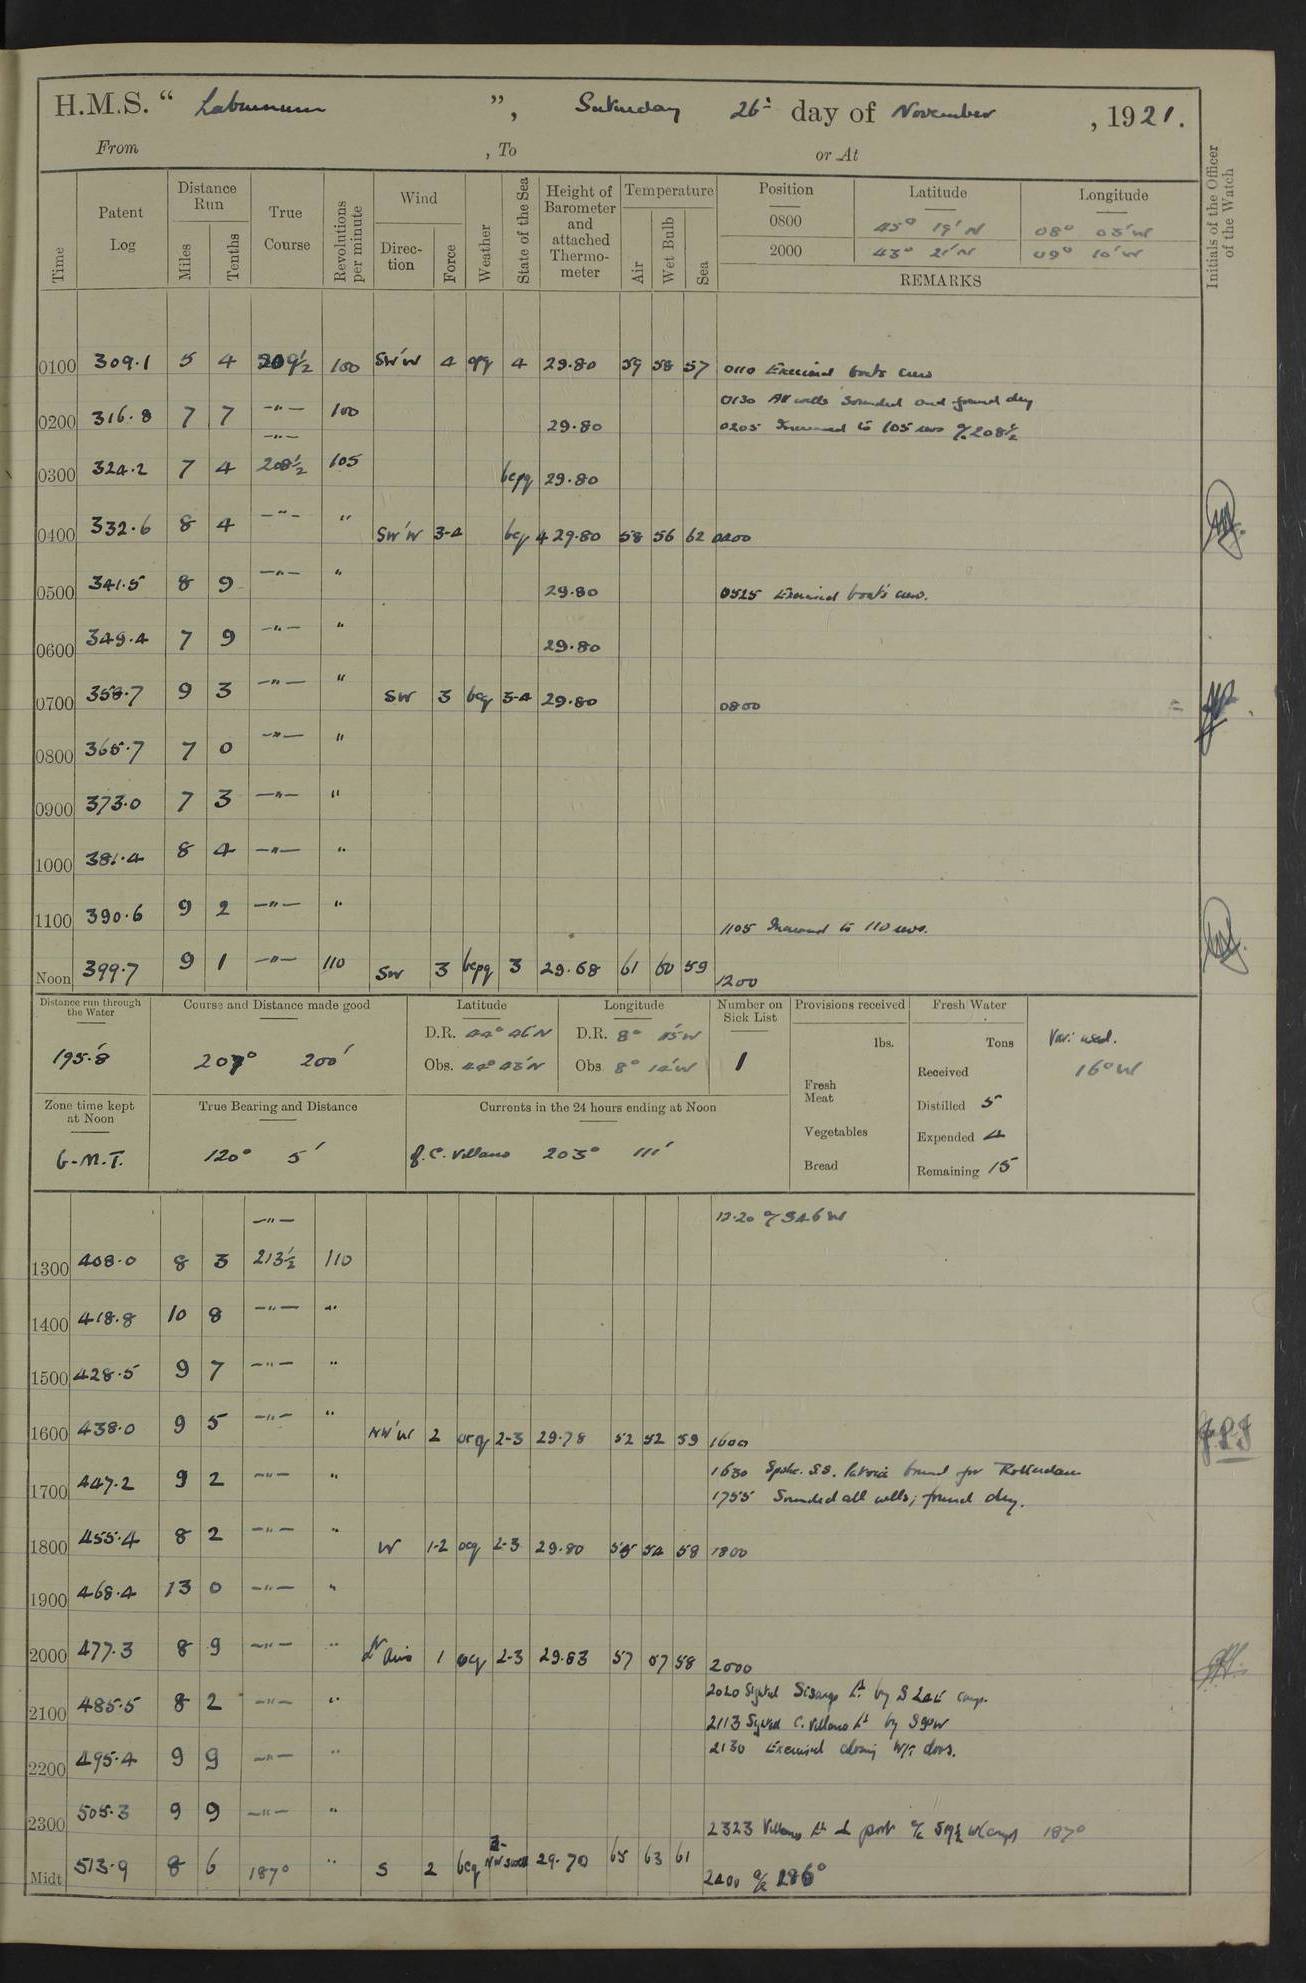 H.M.S. " Laburnum ", Saturday 26th day of November, 1921.
From , To or At
Time Patent Log Distance Run Miles Tenths True Course Revolutions per minute Wind Direction Force Weather State of the Sea Height of Barometer and attached Thermometer Temperature Air Wet Bulb Sea Position Latitude Longitude Initials of the Officer of the Watch
0800 45° 19' N 08° 03' W
2000 43° 21' N 09° 10' W
REMARKS
0100 309.1 5 4 209½ 100 SW'W 4 4 29.80 59 58 57 0110 Exercised boats crew
0130 All wells sounded and found dry
0200 316.8 7 7 —"— 100 29.80 0205 Increased to 105 revs a/c 208½
—"—
0300 324.2 7 4 208½ 105 bcpq 29.80
0400 332.6 8 4 —"— " SW'W 3-4 bcq 4 29.80 58 56 62 0400
0500 341.5 8 9 —"— " 29.80 0515 Exercised boat's crew.
0600 349.4 7 9 —"— " 29.80
0700 358.7 9 3 —"— " SW 3 bcq 3-4 29.80 0800
0800 365.7 7 0 —"— "
0900 373.0 7 3 —"— "
1000 381.4 8 4 —"— "
1100 390.6 9 2 —"— " 1105 Increased to 110 revs.
Noon 399.7 9 1 —"— 110 SW 3 bcpq 3 29.68 61 60 59 1200
Distance run through the Water Course and Distance made good Latitude Longitude Number on Sick List Provisions received Fresh Water
195.8' 207° 200' D.R. 44° 46' N D.R. 8° 15' W 1 lbs. Tons Var: used.
Obs. 44° 43' N Obs 8° 14' W Received 16° W
Fresh Meat Distilled 5
Zone time kept at Noon True Bearing and Distance Currents in the 24 hours ending at Noon
Vegetables Expended 4
G.M.T. 120° 5' f. C. Villano 203° 111' Bread Remaining 15
—"— 12.20 a/c S46W
1300 408.0 8 3 213½ 110
1400 418.8 10 8 —"— "
1500 428.5 9 7 —"— "
1600 438.0 9 5 —"— " NW'W 2 orq 2-3 29.78 52 52 59 1600
1630 Spoke S.S. bound for Rotterdam
1700 447.2 9 2 —"— " 1755 Sounded all wells; found dry.
1800 455.4 8 2 —"— " W 1-2 ocq 2-3 29.80 55 54 58 1800
1900 468.4 13 0 —"— "
2000 477.3 8 9 —"— " Lt Airs 1 ocq 2-3 29.83 57 57 58 2000
2020 Sighted Sisargo Lt by S comp.
2100 485.5 8 2 —"— " 2113 Sighted C. Villano Lt by S W
2200 495.4 9 9 —"— " 2130 Exercised closing W/T doors.
2300 505.3 9 9 —"— " 2323 Villano Lt port a/c 187°
Midt 513.9 8 6 187° " S 2 bcq 3- NW Swell 29.70 65 63 61 2400 a/c 286°